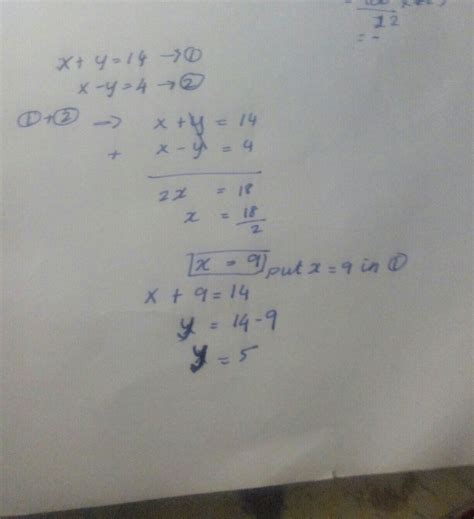 x + y = 14 → ①
x - y = 4 → ②
① + ② → x + y = 14
+ x - y = 4
2x = 18
x = 18/2
x = 9 put x = 9 in ①
x + 9 = 14
y = 14 - 9
y = 5